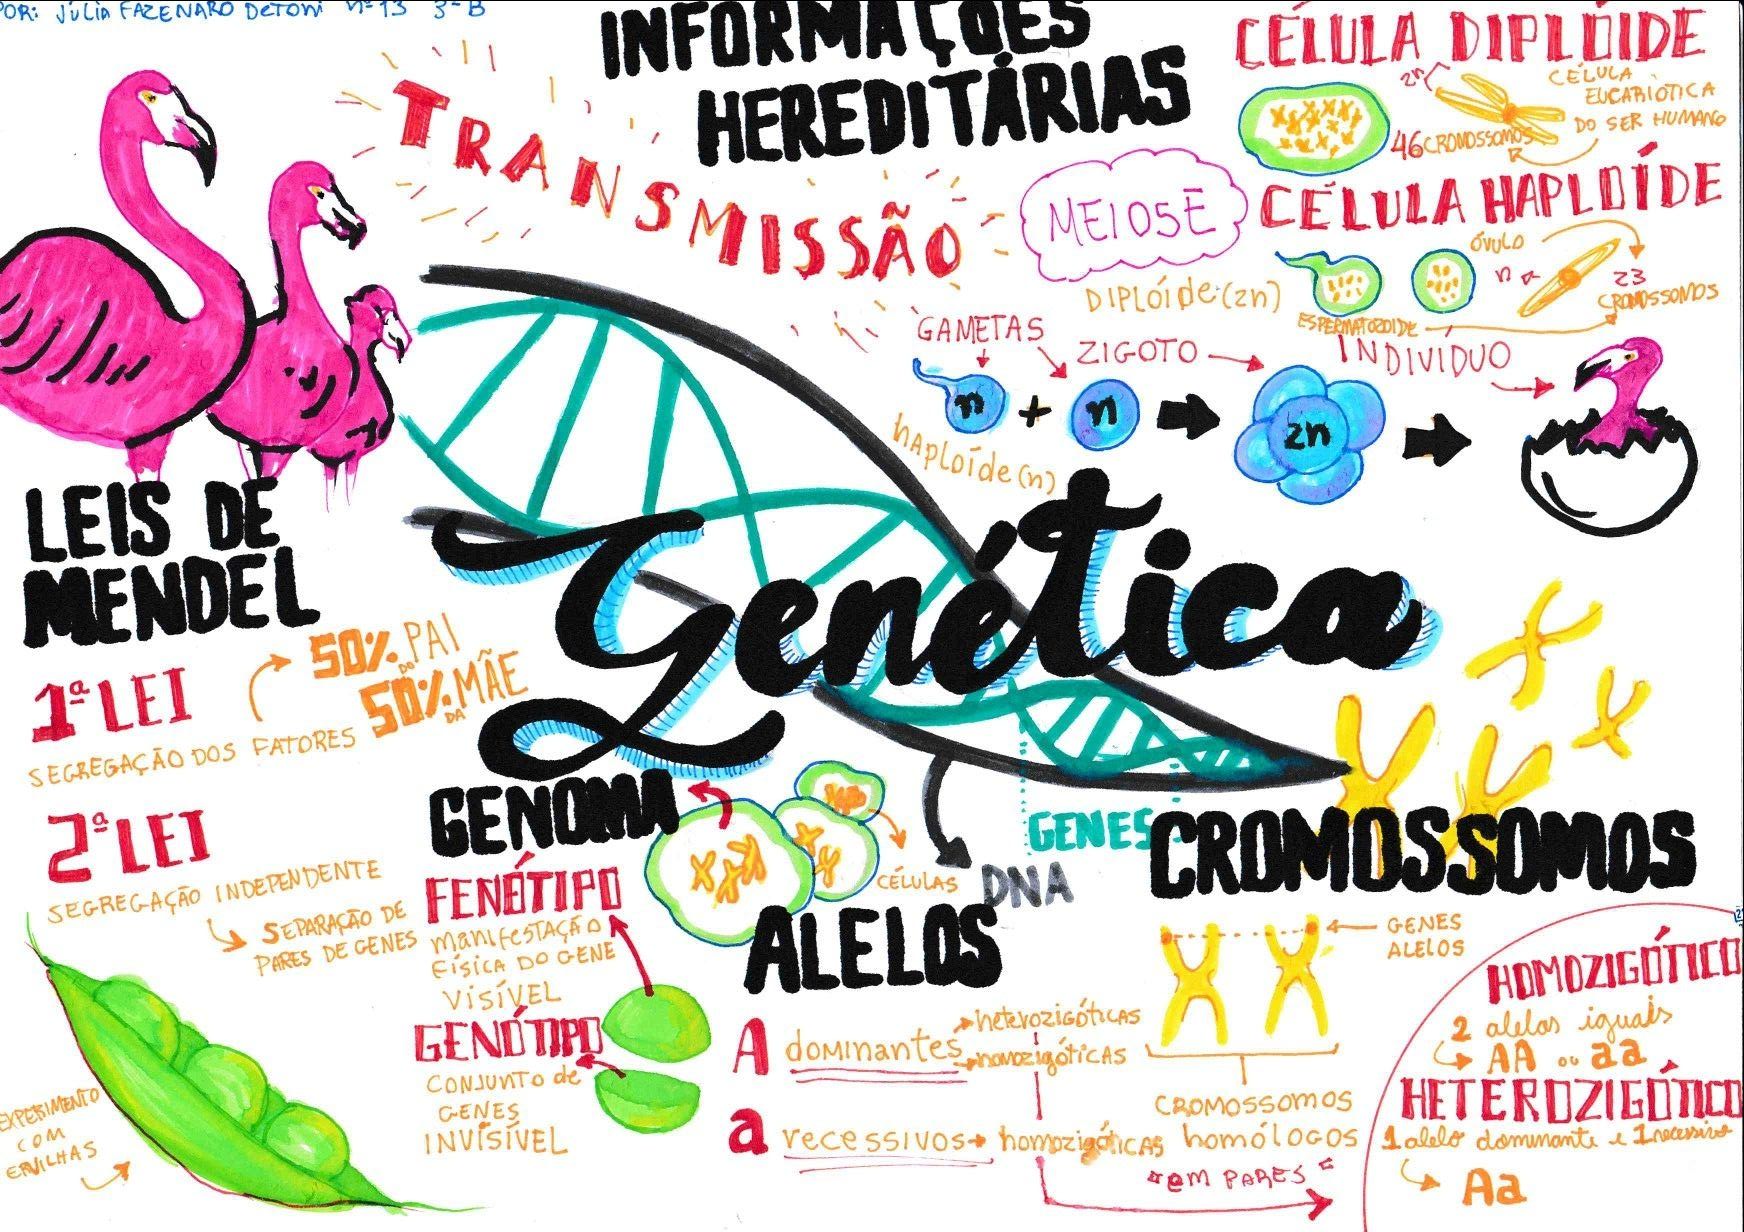 POR: Júlia FAZENARO DETONI nº 13 3º B
INFORMAÇÕES
HEREDITÁRIAS
TRANSMISSÃO
CÉLULA DIPLÓIDE
2n
CÉLULA
EUCARIÓTICA
DO SER HUMANO
46 CROMOSSOMOS
CÉLULA HAPLÓÍDE
MEIOSE
ÓVULO
n
23
CROMOSSOMOS
ESPERMATOZOIDE
DIPLÓIDE (2n)
GAMETAS
ZIGOTO
INDIVÍDUO
n + n
2n
HAPLOÍDE (n)
Genética
LEIS DE
MENDEL
1ª LEI
50% DO PAI
50% DA MÃE
SEGREGAÇÃO DOS FATORES
2ª LEI
SEGREGAÇÃO INDEPENDENTE
SEPARAÇÃO DE
PARES DE GENES
EXPERIMENTO
COM
ERVILHAS
GENOMA
CÉLULAS
DNA
GENES
CROMOSSOMOS
FENÓTIPO
MANIFESTAÇÃO
FÍSICA DO GENE
VISÍVEL
GENÓTIPO
CONJUNTO de
GENES
INVÍSÍVEL
ALELOS
A dominantes
heterozigóticas
homozigóticas
a recessivos
homozigóticas
GENES
ALELOS
CROMOSSOMOS
homólogos
"em PARES"
HOMOZIGÓTICO
2 alelos iguais
AA ou aa
HETEROZIGÓTICO
1 alelo dominante e 1 recessivo
Aa